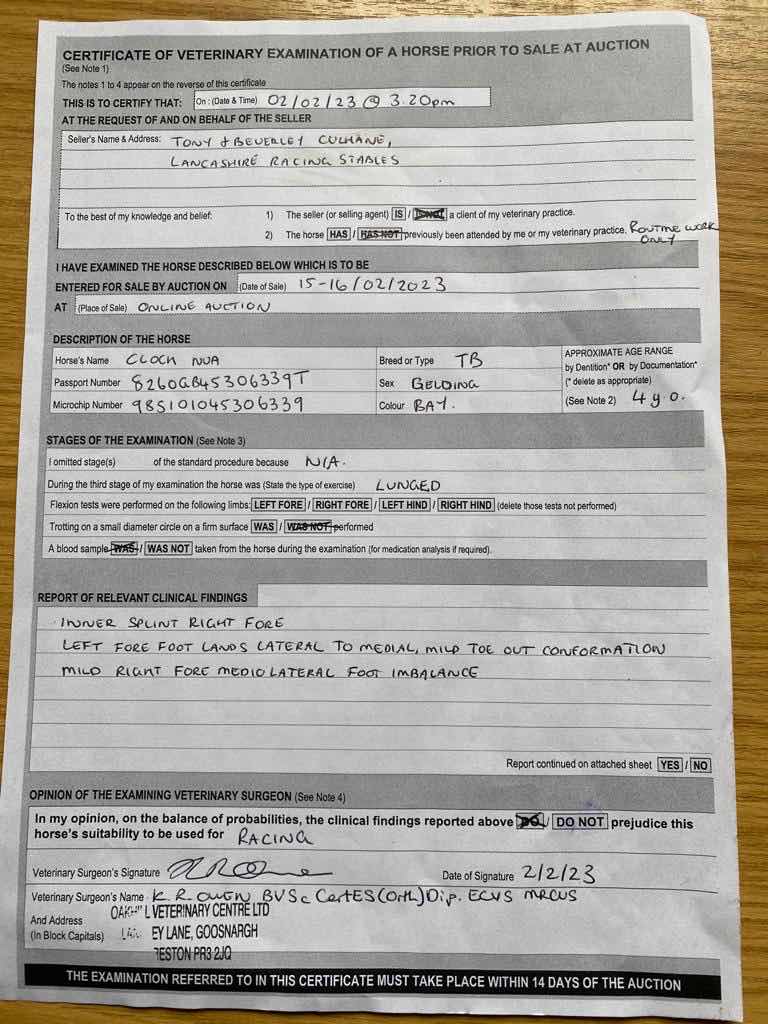 CERTIFICATE OF VETERINARY EXAMINATION OF A HORSE PRIOR TO SALE AT AUCTION
(See Note 1)
The notes 1 to 4 appear on the reverse of this certificate
THIS IS TO CERTIFY THAT: On : (Date & Time) 02/02/23 @ 3.20pm
AT THE REQUEST OF AND ON BEHALF OF THE SELLER
Seller's Name & Address: TONY & BEVERLEY CULHANE,
LANCASHIRE RACING STABLES
To the best of my knowledge and belief: 1) The seller (or selling agent) IS / IS NOT a client of my veterinary practice.
2) The horse HAS / HAS NOT previously been attended by me or my veterinary practice. ROUTINE WORK
ONLY
I HAVE EXAMINED THE HORSE DESCRIBED BELOW WHICH IS TO BE
ENTERED FOR SALE BY AUCTION ON (Date of Sale) 15-16/02/2023
AT (Place of Sale) ONLINE AUCTION
DESCRIPTION OF THE HORSE
Horse's Name CLOCH NUA Breed or Type TB
Passport Number 8260GB45306339T Sex GELDING
Microchip Number 985101045306339 Colour BAY.
APPROXIMATE AGE RANGE
by Dentition* OR by Documentation*
(* delete as appropriate)
(See Note 2) 4 y.o.
STAGES OF THE EXAMINATION (See Note 3)
I omitted stage(s) of the standard procedure because N/A.
During the third stage of my examination the horse was (State the type of exercise) LUNGED
Flexion tests were performed on the following limbs: LEFT FORE / RIGHT FORE / LEFT HIND / RIGHT HIND (delete those tests not performed)
Trotting on a small diameter circle on a firm surface WAS / WAS NOT performed
A blood sample WAS / WAS NOT taken from the horse during the examination (for medication analysis if required).
REPORT OF RELEVANT CLINICAL FINDINGS
INNER SPLINT RIGHT FORE
LEFT FORE FOOT LANDS LATERAL TO MEDIAL, MILD TOE OUT CONFORMATION
MILD RIGHT FORE MEDIOLATERAL FOOT IMBALANCE
Report continued on attached sheet YES / NO
OPINION OF THE EXAMINING VETERINARY SURGEON (See Note 4)
In my opinion, on the balance of probabilities, the clinical findings reported above DO / DO NOT prejudice this
horse's suitability to be used for RACING
Veterinary Surgeon's Signature Date of Signature 2/2/23
Veterinary Surgeon's Name K. R. OWEN BVSc CertES(Orth) Dip. ECVS MRCVS
And Address VETERINARY CENTRE LTD
(In Block Capitals) EY LANE, GOOSNARGH
RESTON PR3 2JQ
THE EXAMINATION REFERRED TO IN THIS CERTIFICATE MUST TAKE PLACE WITHIN 14 DAYS OF THE AUCTION